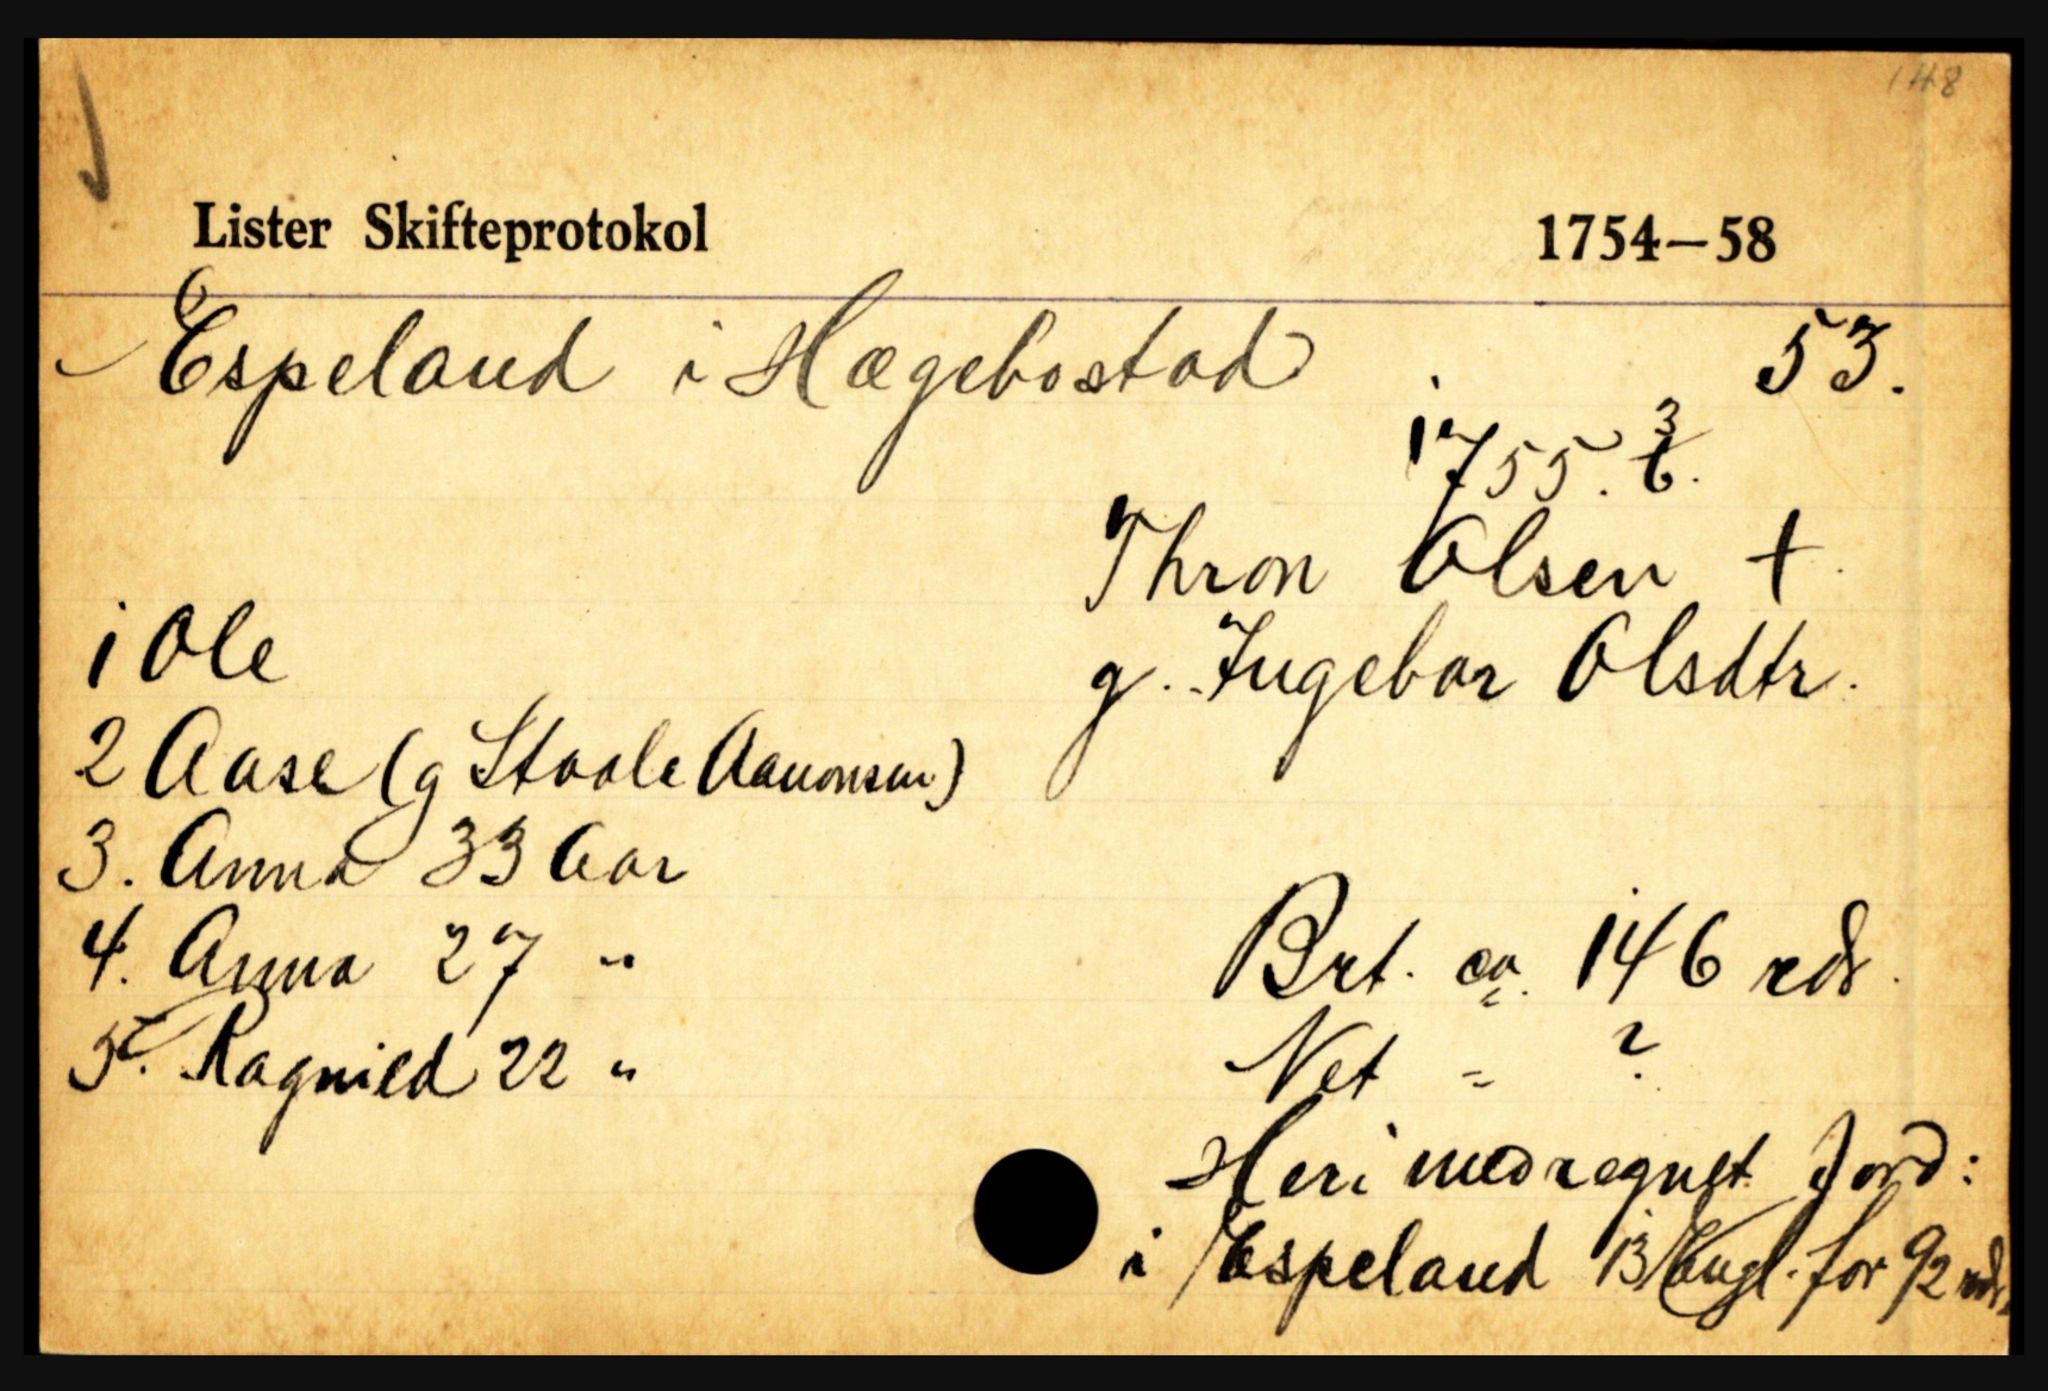 148
Lister Skifteprotokol 1754–58
Espeland i Hægebostad 53.
1755. 3/6.
Thron Olsen †.
g. Ingebor Olsdtr.
1 Ole
2 Aase (g Staale Aanonsen)
3. Anna 33 Aar
4. Anna 27 "
5. Ragnild 22 "
Brt. ca. 146 rdr.
Net " ?
Heri medregnet Jord:
i Espeland 13 Engl. for 92 rdr.